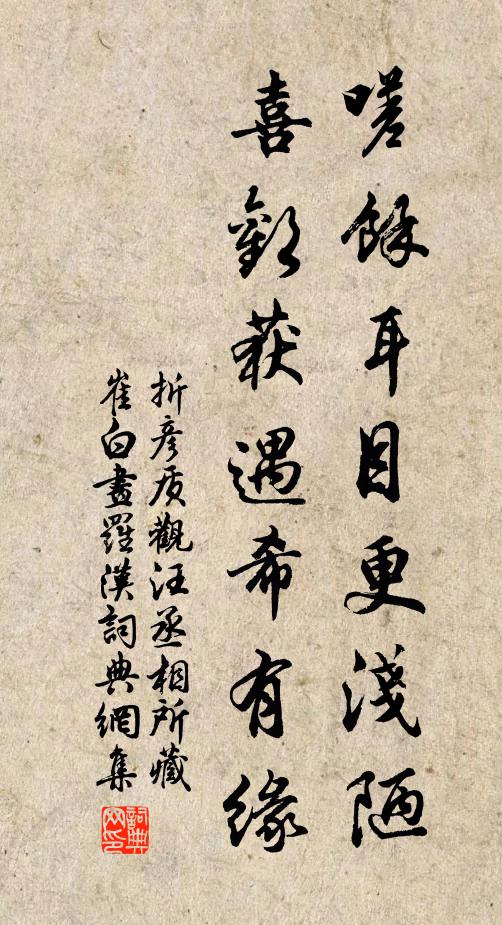 嗟餘耳目更淺陋
喜歡获遇希有緣
折彥质觀汪丞相所藏
崔白畫羅漢詞典網集
詞典
网印